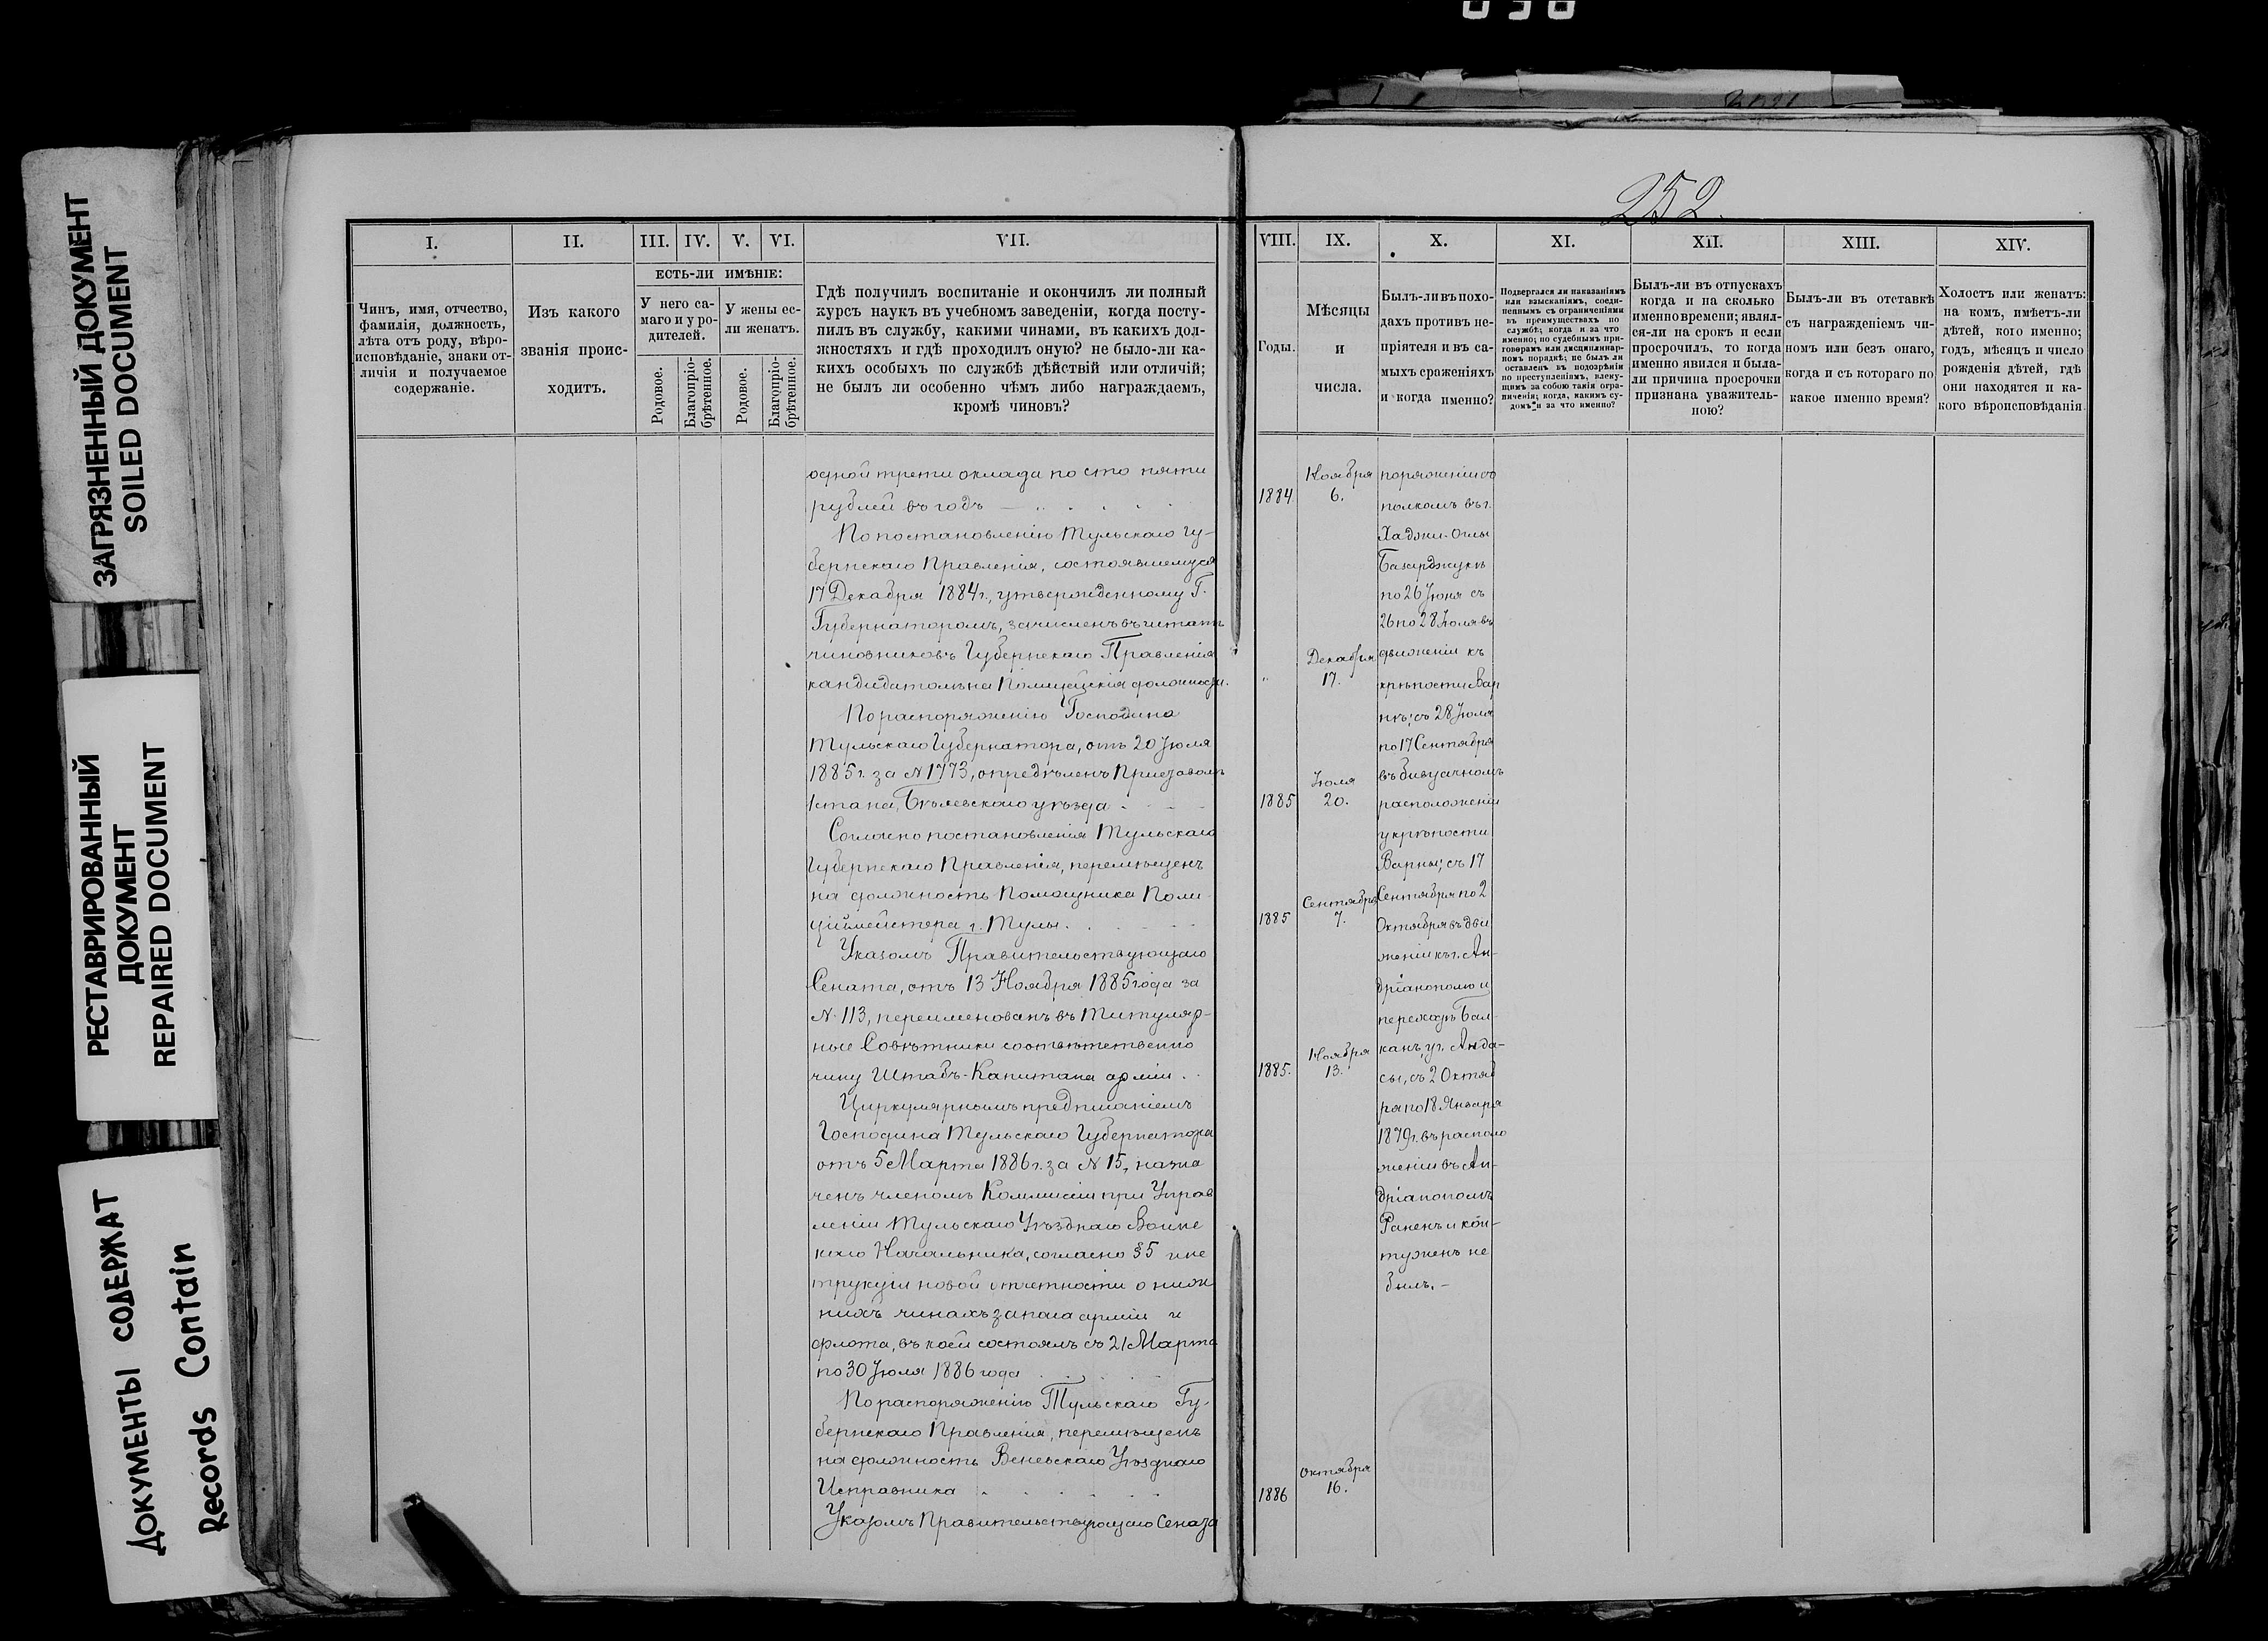 ЗАГРЯЗНЕННЫЙ ДОКУМЕНТ
SOILED DOCUMENT
РЕСТАВРИРОВАННЫЙ
ДОКУМЕНТ
REPAIRED DOCUMENT
ДОКУМЕНТЫ СОДЕРЖАТ
Records Contain
252.
I.
II.
III.
IV.
V.
VI.
VII.
Чинъ, имя, отчество,
фамилія, должность,
лѣта отъ роду, вѣро-
исповѣданіе, знаки от-
личія и получаемое
содержаніе.
Изъ какого
званія проис-
ходитъ.
ЕСТЬ-ЛИ ИМѢНІЕ:
У него са-
маго и у ро-
дителей.
У жены ес-
ли женатъ.
Родовое.
Благопріо-
брѣтенное.
Родовое.
Благопріо-
брѣтенное.
Гдѣ получилъ воспитаніе и окончилъ ли полный
курсъ наукъ въ учебномъ заведеніи, когда посту-
пилъ въ службу, какими чинами, въ какихъ дол-
жностяхъ и гдѣ проходилъ оную? не было-ли ка-
кихъ особыхъ по службѣ дѣйствій или отличій;
не былъ ли особенно чѣмъ либо награждаемъ,
кромѣ чиновъ?
одной трети оклада по сто пяти
рублей въ годъ — . . . . .
По постановленію Тульскаго Гу-
бернскаго Правленія, состоявшемуся
17 Декабря 1884 г., утвержденному Г.
Губернаторомъ, зачисленъ въ штатъ
чиновниковъ Губернскаго Правленія
кандидатомъ на Полицейскія должности.
По распоряженію Господина
Тульскаго Губернатора, отъ 20 Іюля
1885 г. за № 1773, опредѣленъ Приставомъ
1 стана, Бѣлевскаго уѣзда . . . .
Согласно постановленія Тульскаго
Губернскаго Правленія, перемѣщенъ
на должность Помощника Поли-
ціймейстера г. Тулы. . . . .
Указомъ Правительствующаго
Сената, отъ 13 Ноября 1885 года за
№ 113, переименованъ въ Титуляр-
ные Совѣтники соотвѣтственно
чину Штабъ-Капитана арміи . .
Циркулярнымъ предписаніемъ
Господина Тульскаго Губернатора
отъ 5 Марта 1886 г. за № 15, назна
ченъ членомъ Коммисіи при Управ
леніи Тульскаго Уѣзднаго Воинс
каго Начальника, согласно § 5 инс
трукціи новой отчетности о ниж
нихъ чинахъ запаса арміи и
флота, въ коей состоялъ съ 21 Марта
по 30 Іюля 1886 года . . . .
По распоряженію Тульскаго Гу-
бернскаго Правленія, перемѣщенъ
на должность Веневскаго Уѣзднаго
Исправника . . . . . .
Указомъ Правительствующаго Сената
VIII.
IX.
X.
XI.
XII.
XIII.
XIV.
Годы.
Мѣсяцы
и
числа.
Былъ-ли въ похо-
дахъ противъ не-
пріятеля и въ са-
мыхъ сраженіяхъ
и когда именно?
Подвергался ли наказаніямъ
или взысканіямъ, соеди-
неннымъ съ ограниченіями
въ преимуществахъ по
службѣ; когда и за что
именно; по судебнымъ при-
говорамъ или дисциплинар-
номъ порядкѣ; не былъ ли
оставленъ въ подозрѣніи
по преступленіямъ, влеку-
щимъ за собою такія огра-
ниченія; когда, какимъ су-
домъ и за что именно?
Былъ-ли въ отпускахъ
когда и на сколько
именно времени; являл-
ся-ли на срокъ и если
просрочилъ, то когда
именно явился и была-
ли причина просрочки
признана уважитель-
ною?
Былъ-ли въ отставкѣ
съ награжденіемъ чи-
номъ или безъ онаго,
когда и съ котораго по
какое именно время?
Холостъ или женатъ:
на комъ, имѣетъ-ли
дѣтей, кого именно;
годъ, мѣсяцъ и число
рожденія дѣтей, гдѣ
они находятся и ка-
кого вѣроисповѣданія
1884
Ноября
6.
"
Декабря
17.
1885
Іюля
20.
1885
Сентября
7.
1885.
Ноября
13.
1886
Октября
16.
поряженіи съ
полкомъ въ г.
Хаджи-Оглы
Базарджукъ
по 26 Іюня съ
26 по 28 Іюля въ
движеніи къ
крѣпости Вар
нѣ; съ 28 Іюля
по 17 Сентября
въ бивуачномъ
расположеніи
у крѣпости
Варны; съ 17
Сентября по 2
Октября въ дви
женіи къ г. Ан-
дріанополю и
переходъ Бал-
канъ у г. Аидо-
сы, съ 2 Октяб
ря по 18 Января
1879 г. въ располо
женіи въ Ан-
дріанополѣ
Раненъ и кон-
туженъ не
былъ. —